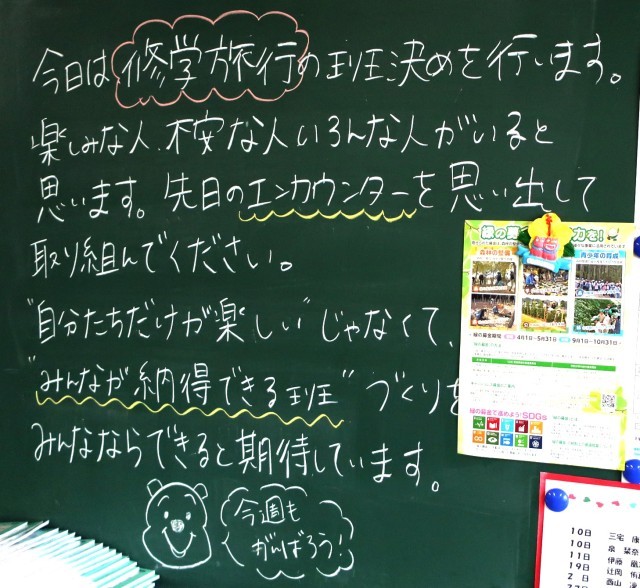 今日は修学旅行の班決めを行います。
楽しみな人、不安な人いろんな人がいると
思います。先日のエンカウンターを思い出して
取り組んでください。
"自分たちだけが楽しい"じゃなくて、
"みんなが納得できる班"づくりを
みんなならできると期待しています。
今週も
がんばろう!
緑の
力を!
森林の整備
青少年の育成
4月1日~5月31日
9月1日~10月31日
緑の募金で進めよう! SDGs
10日 三宅
10日 泉
11日 伊藤
19日 辻岡
2日 西山